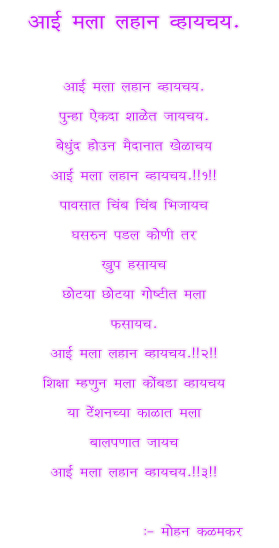 आई मला लहान व्हायचय.
आई मला लहान व्हायचय.
पुन्हा ऐकदा शाळेत जायचय.
बेधुंद होउन मैदानात खेळाचय
आई मला लहान व्हायचय.!!१!!
पावसात चिंब चिंब भिजायच
घसरुन पडल कोणी तर
खुप हसायच
छोटया छोटया गोष्टीत मला
फसायच.
आई मला लहान व्हायचय.!!२!!
शिक्षा म्हणुन मला कोंबडा व्हायचय
या टेंशनच्या काळात मला
बालपणात जायच
आई मला लहान व्हायचय.!!३!!
:- मोहन कळमकर